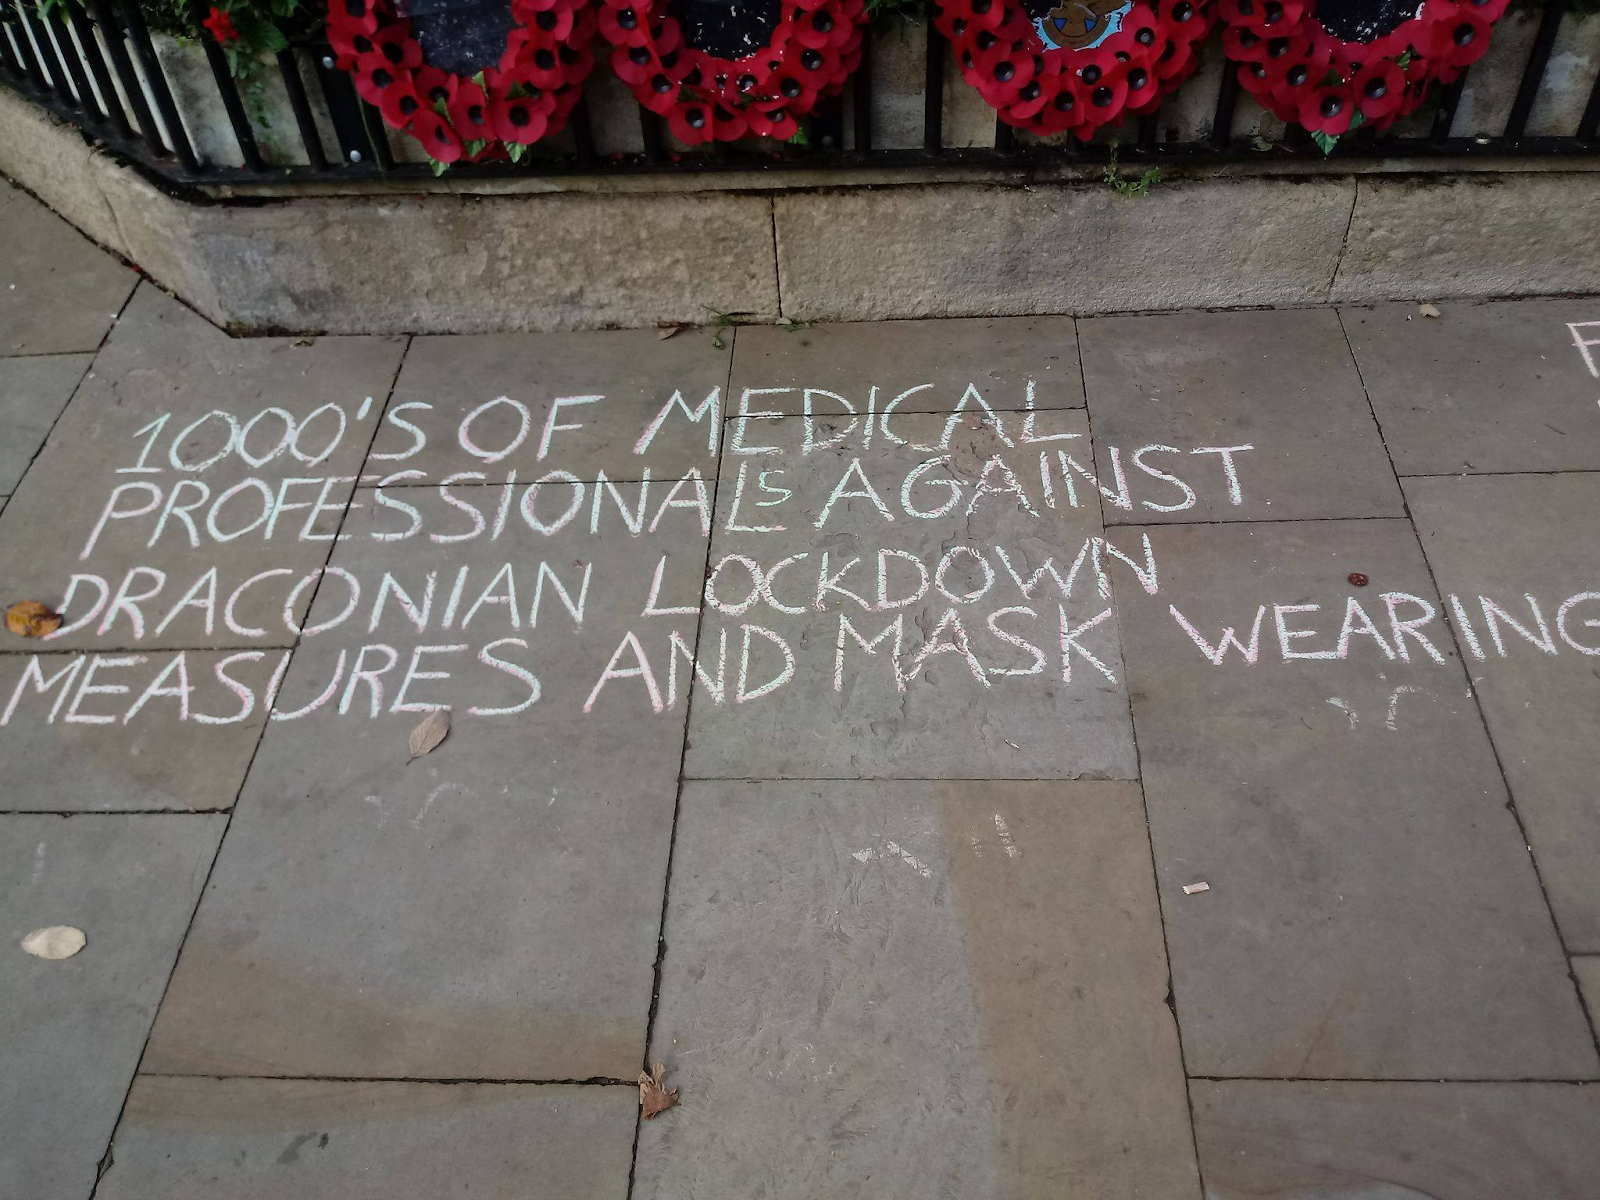 1000'S OF MEDICAL
PROFESSIONALS AGAINST
DRACONIAN LOCKDOWN
MEASURES AND MASK WEARING